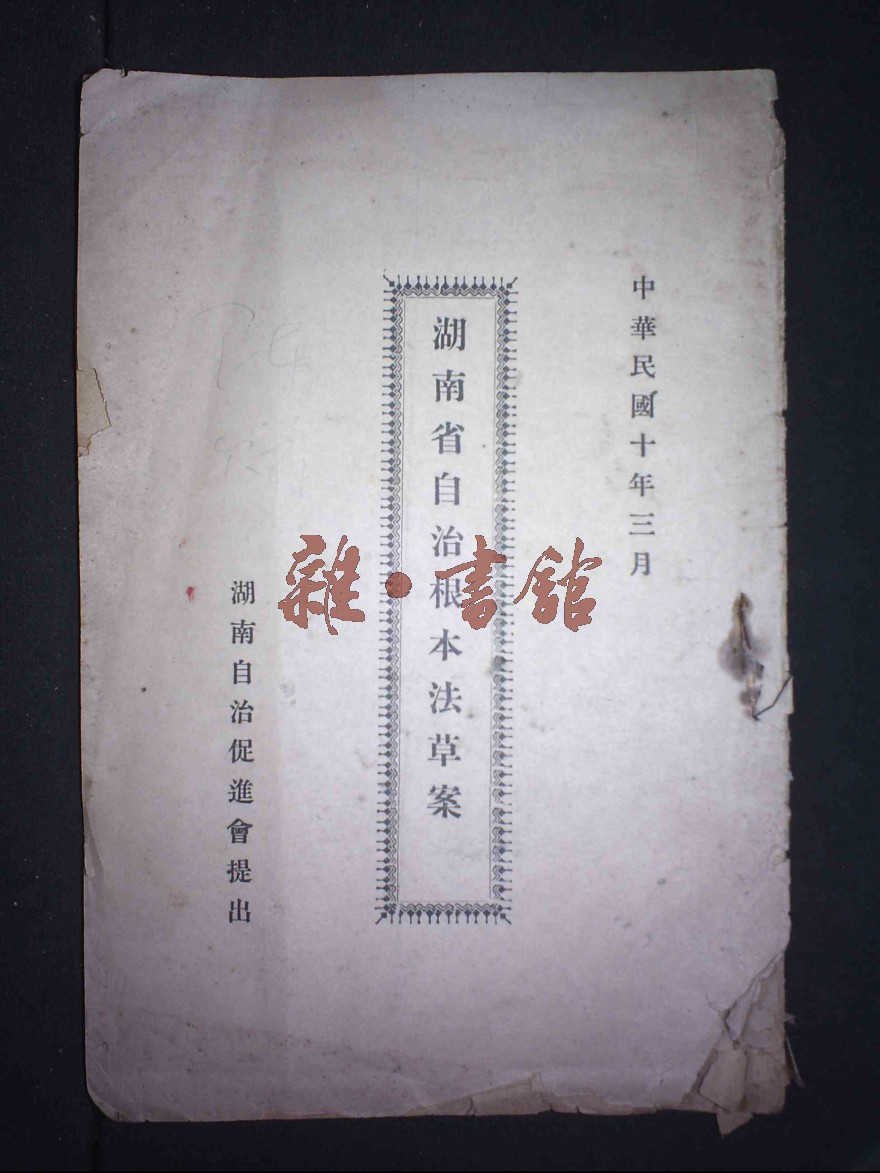 中華民國十年三月
湖南省自治根本法草案
湖南自治促進會提出
雜·書館